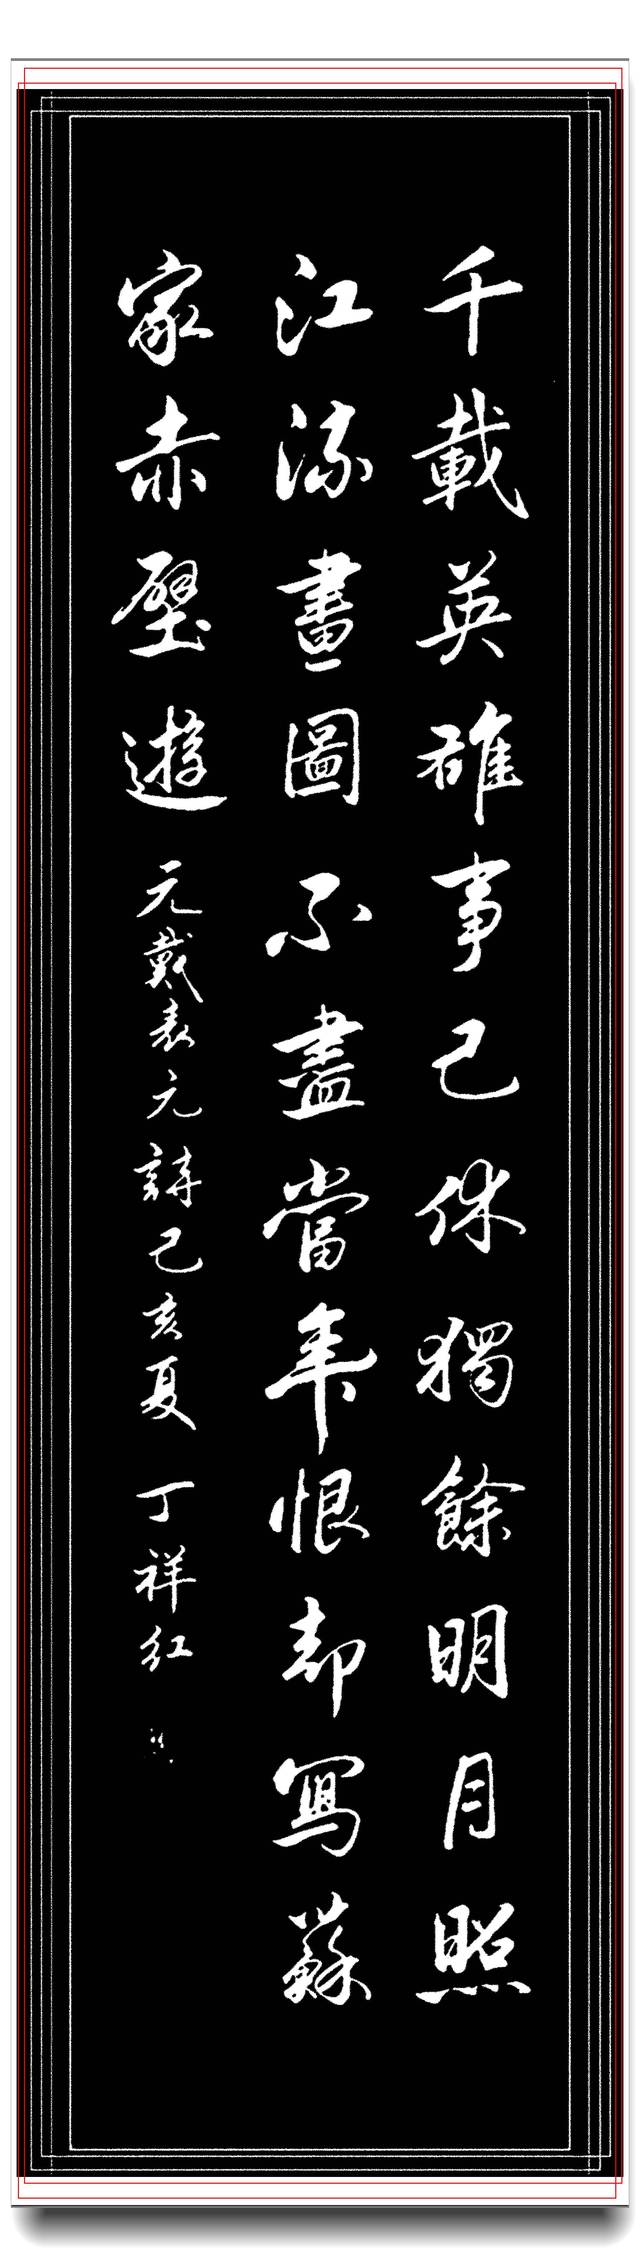 千載英雄事已休獨餘明月照
江流畫圖不盡當年恨却寫蘇
家赤壁遊 元戴表元詩己亥夏 丁祥红